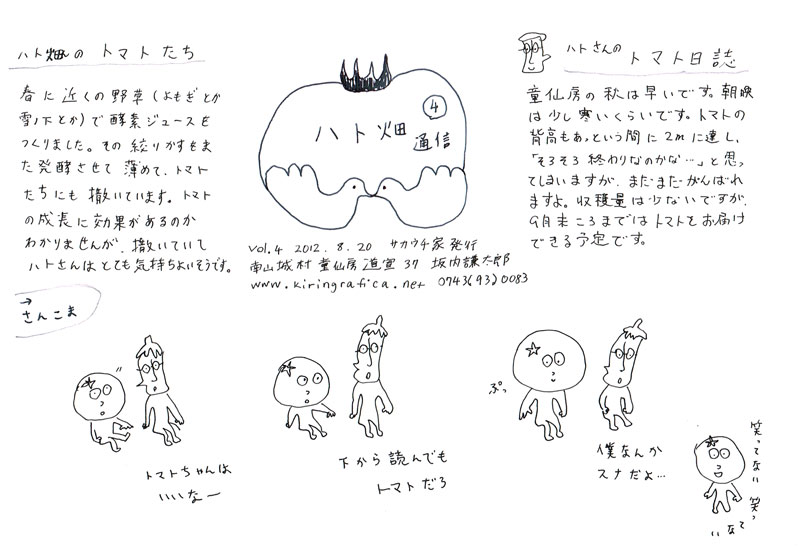 ハト畑の トマトたち
春に近くの野草(よもぎとか
雪ノ下とか)で酵素ジュースを
つくりました。その絞りかすをま
た発酵させて薄めて、トマト
たちにも撒いています。トマト
の成長に効果があるのか
わかりませんが、撒いていて
ハトさんはとても気持ちよいそうです。
④
ハト畑
通信
vol.4 2012.8.20 サカウチ家発行
南山城村童仙房道宣37 坂内謙太郎
www.kiringrafica.net 0743(93)0083
ハトさんの トマト日誌
童仙房の秋は早いです。朝晩
は少し寒いくらいです。トマトの
背高もあっという間に2mに達し、
「そろそろ終わりなのかな…」と思っ
てしまいますが、まだまだがんばれ
ますよ。収穫量は少ないですが、
9月末ころまではトマトをお届け
できる予定です。
→
さんこま
トマトちゃんは
いいなー
下から読んでも
トマトだろ
ぷっ
僕なんか
スナだよ…
笑ってない笑っ
てな
い